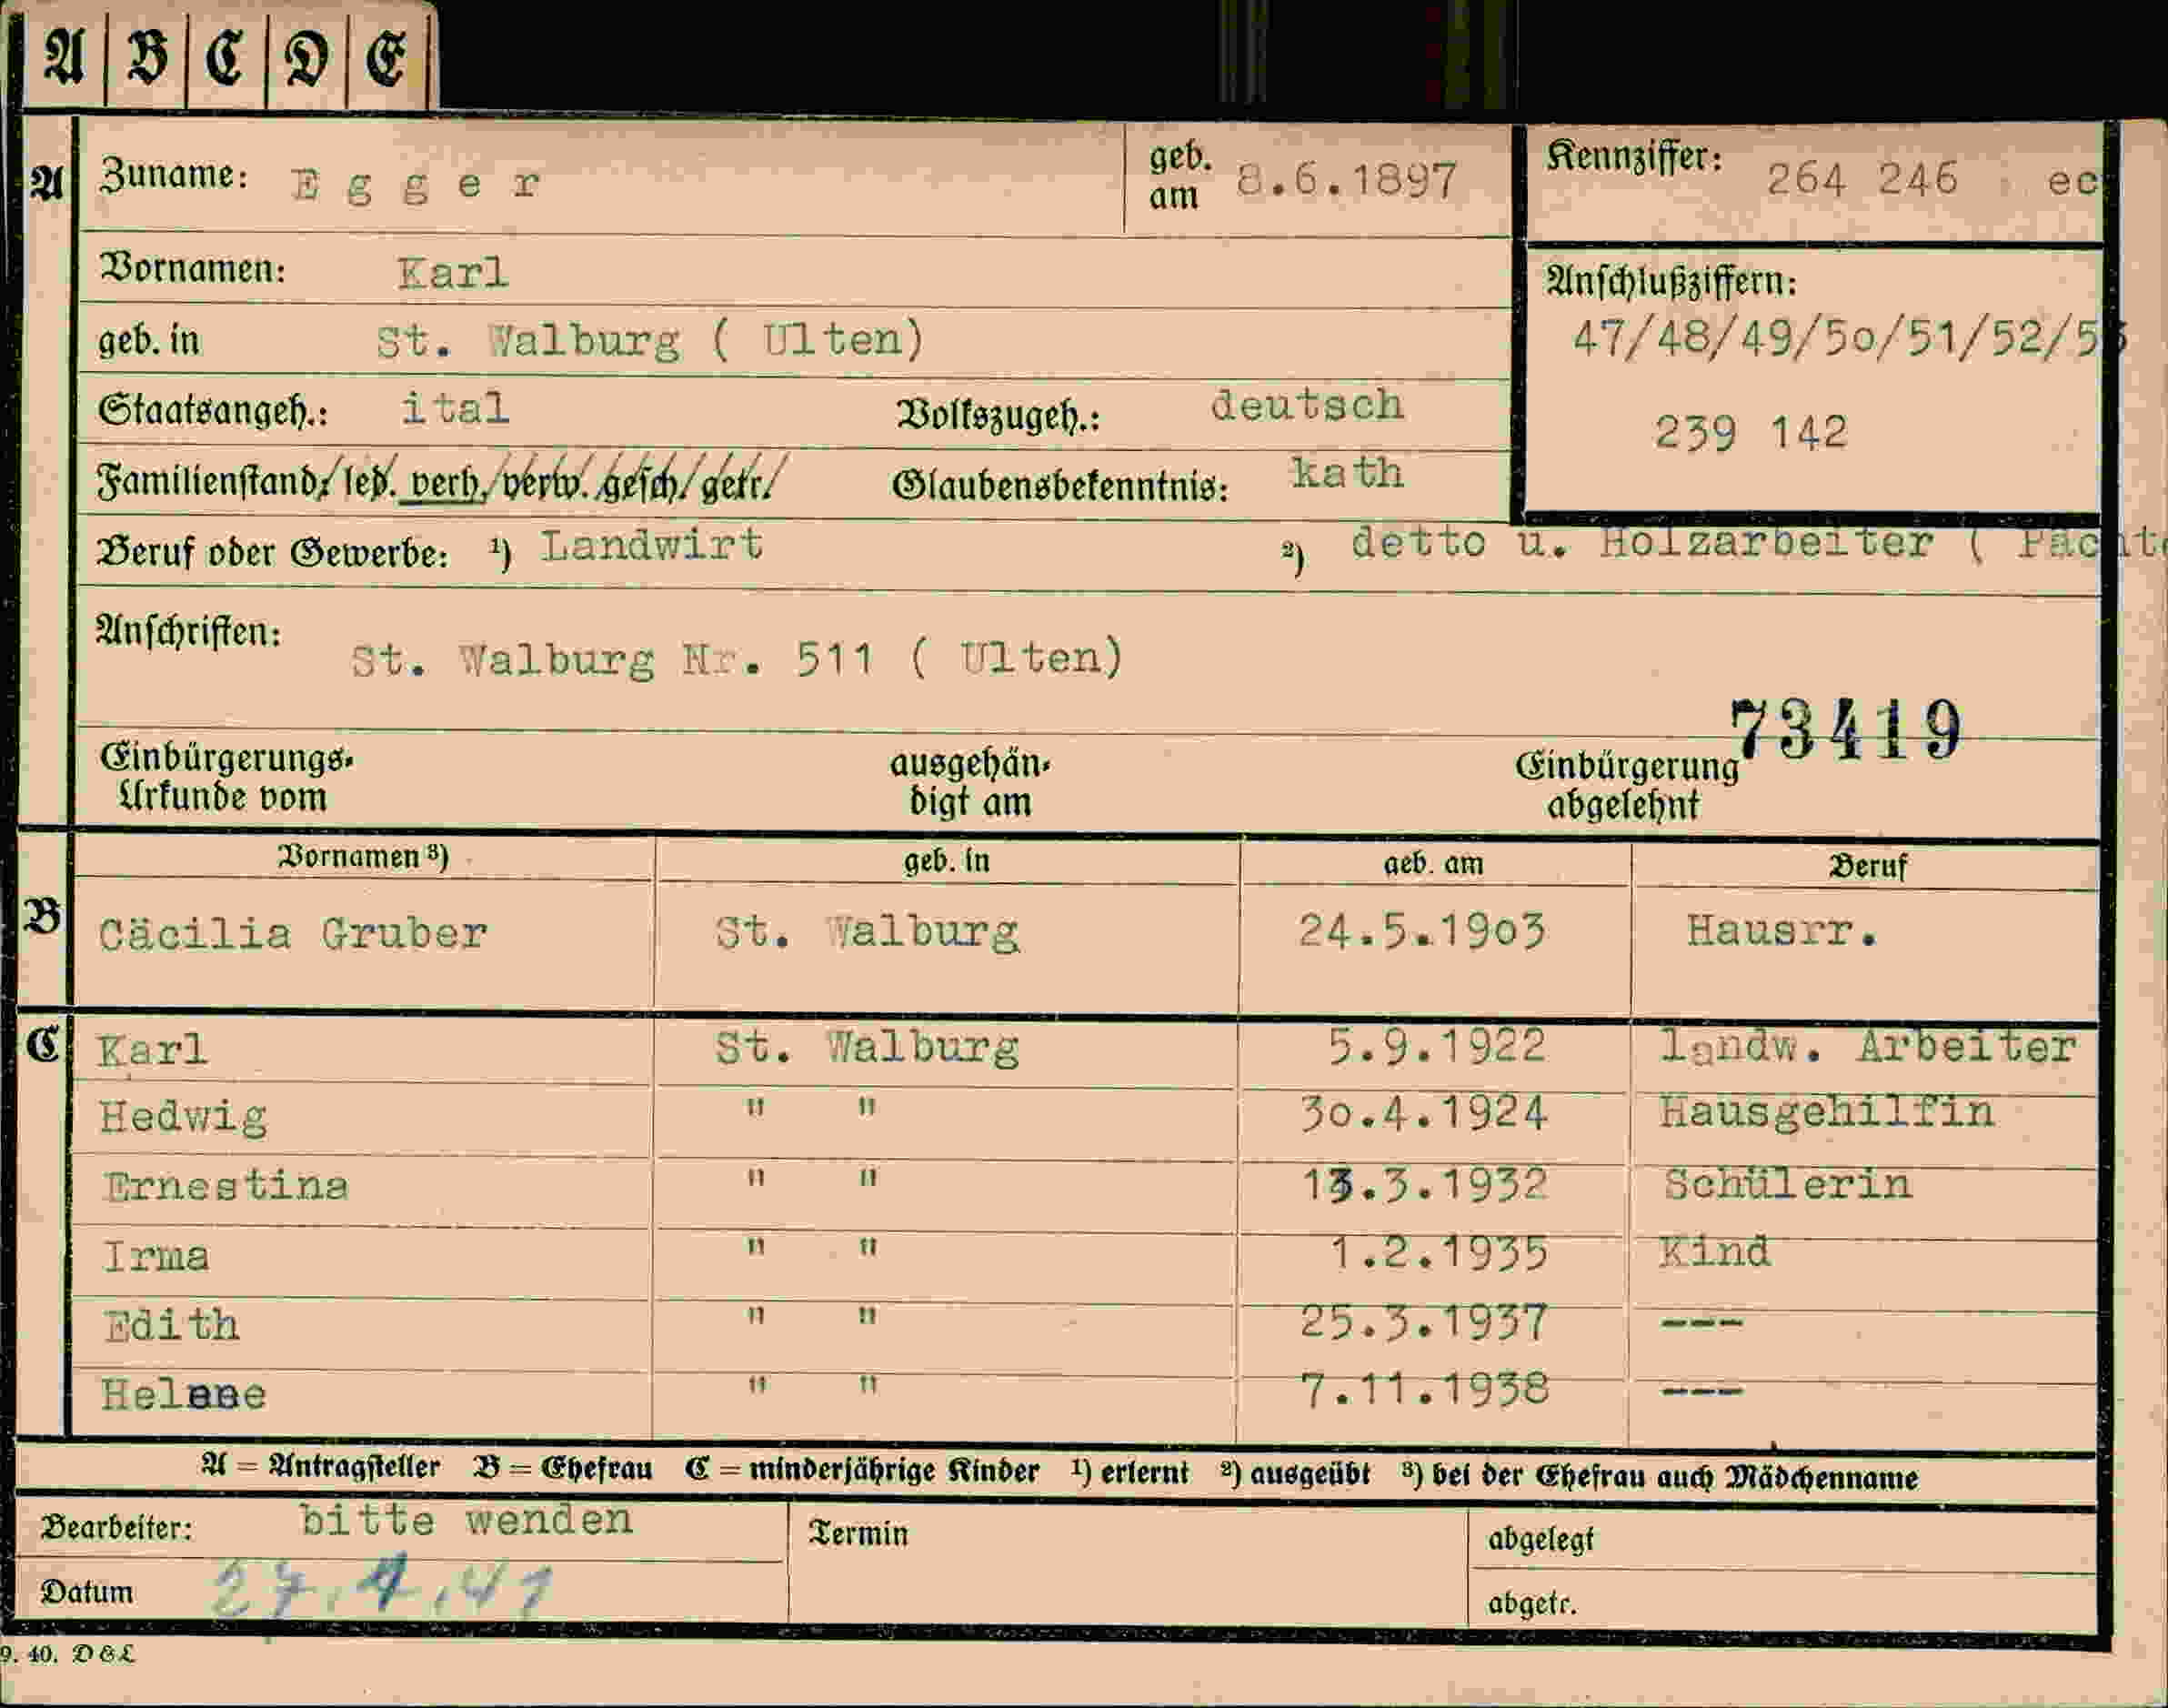 A B C D E
A Zuname: Egger geb. am 8.6.1897 Kennziffer: 264 246 ec
Vornamen: Karl
Anschlußziffern:
geb. in St. Walburg ( Ulten) 47/48/49/50/51/52/53
Staatsangeh.: ital Volkszugeh.: deutsch 239 142
Familienstand: led. verh. verw. gesch. getr. Glaubensbekenntnis: kath
Beruf oder Gewerbe: ¹) Landwirt ²) detto u. Holzarbeiter ( Pachte
Anschriften:
St. Walburg Nr. 511 ( Ulten)
73419
Einbürgerungs-Urkunde vom ausgehän-digt am Einbürgerung abgelehnt
Vornamen ³) geb. in geb. am Beruf
B Cäcilia Gruber St. Walburg 24.5.1903 Hausrr.
C Karl St. Walburg 5.9.1922 landw. Arbeiter
Hedwig " " 30.4.1924 Hausgehilfin
Ernestina " " 13.3.1932 Schülerin
Irma " " 1.2.1935 Kind
Edith " " 25.3.1937 ---
Helene " " 7.11.1938 ---
A = Antragsteller B = Ehefrau C = minderjährige Kinder ¹) erlernt ²) ausgeübt ³) bei der Ehefrau auch Mädchenname
Bearbeiter: bitte wenden Termin abgelegt
Datum 27.4.41 abgetr.
9. 40. D&L